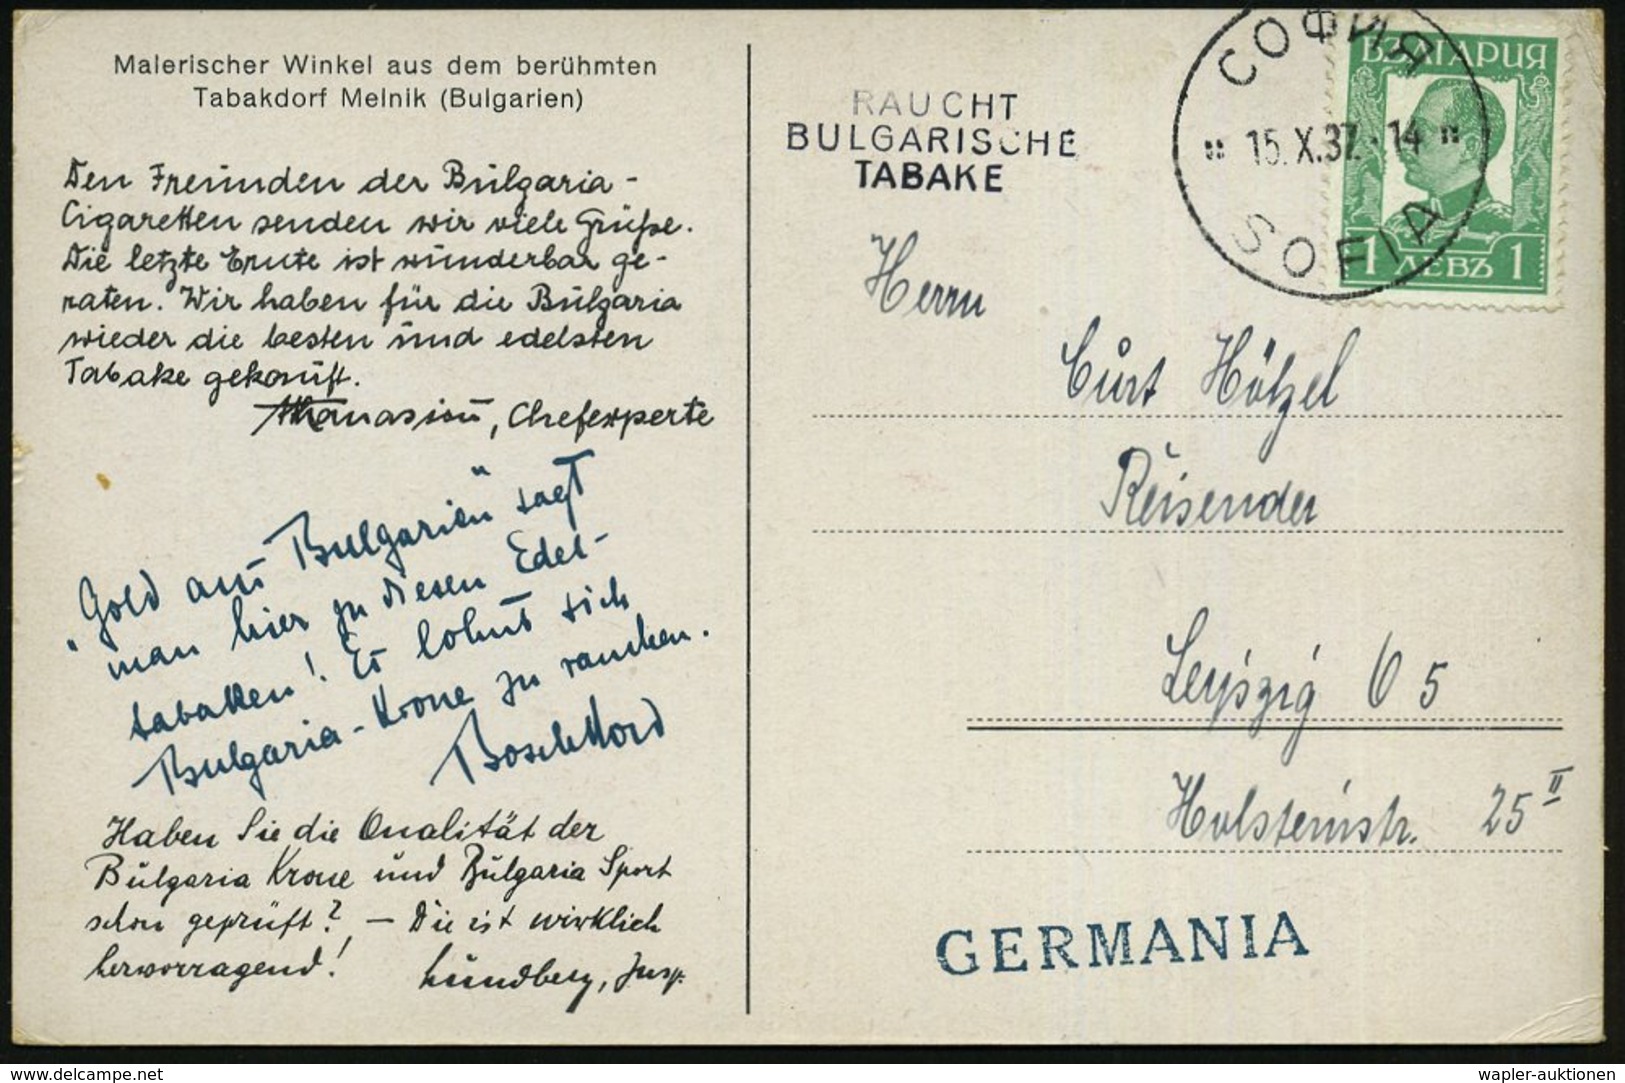 Malerischer Winkel aus dem berühmten
Tabakdorf Melnik (Bulgarien)
Den Freunden der Bulgaria-
Cigaretten senden wir viele Grüße.
Die letzte Ernte ist wunderbar ge-
raten. Wir haben für die Bulgaria
wieder die besten und edelsten
Tabake gekauft.
Athanasiou, Chefexperte
"Gold aus Bulgarien" sagt
man hier zu diesen Edel-
tabaken! Es lohnt sich
Bulgaria-Krone zu rauchen.
Haben Sie die Qualität der
Bulgaria Krone und Bulgaria Sport
schon geprüft? – Die ist wirklich
hervorragend!
Lundberg, Insp.
RAUCHT
BULGARISCHE
TABAKE
СОФИЯ
15.X.37.-14
SOFIA
БЪЛГАРИЯ
1 ЛЕВЪ 1
Herrn
Curt Hötzel
Reisender
Leipzig O 5
Holsteinstr. 25 II
GERMANIA
www.delcampe.net
wapler-auktionen